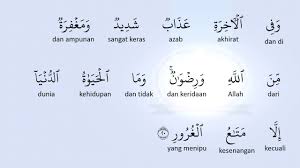 وَفِى الْاٰخِرَةِ عَذَابٌ شَدِيْدٌ وَّمَغْفِرَةٌ
dan di akhirat azab sangat keras dan ampunan
مِّنَ اللّٰهِ وَرِضْوَانٌ ۗ وَمَا الْحَيٰوةُ الدُّنْيَآ
dari Allah dan keridaan dan tidak kehidupan dunia
اِلَّا مَتَاعُ الْغُرُوْرِ ٢٠
kecuali kesenangan yang menipu